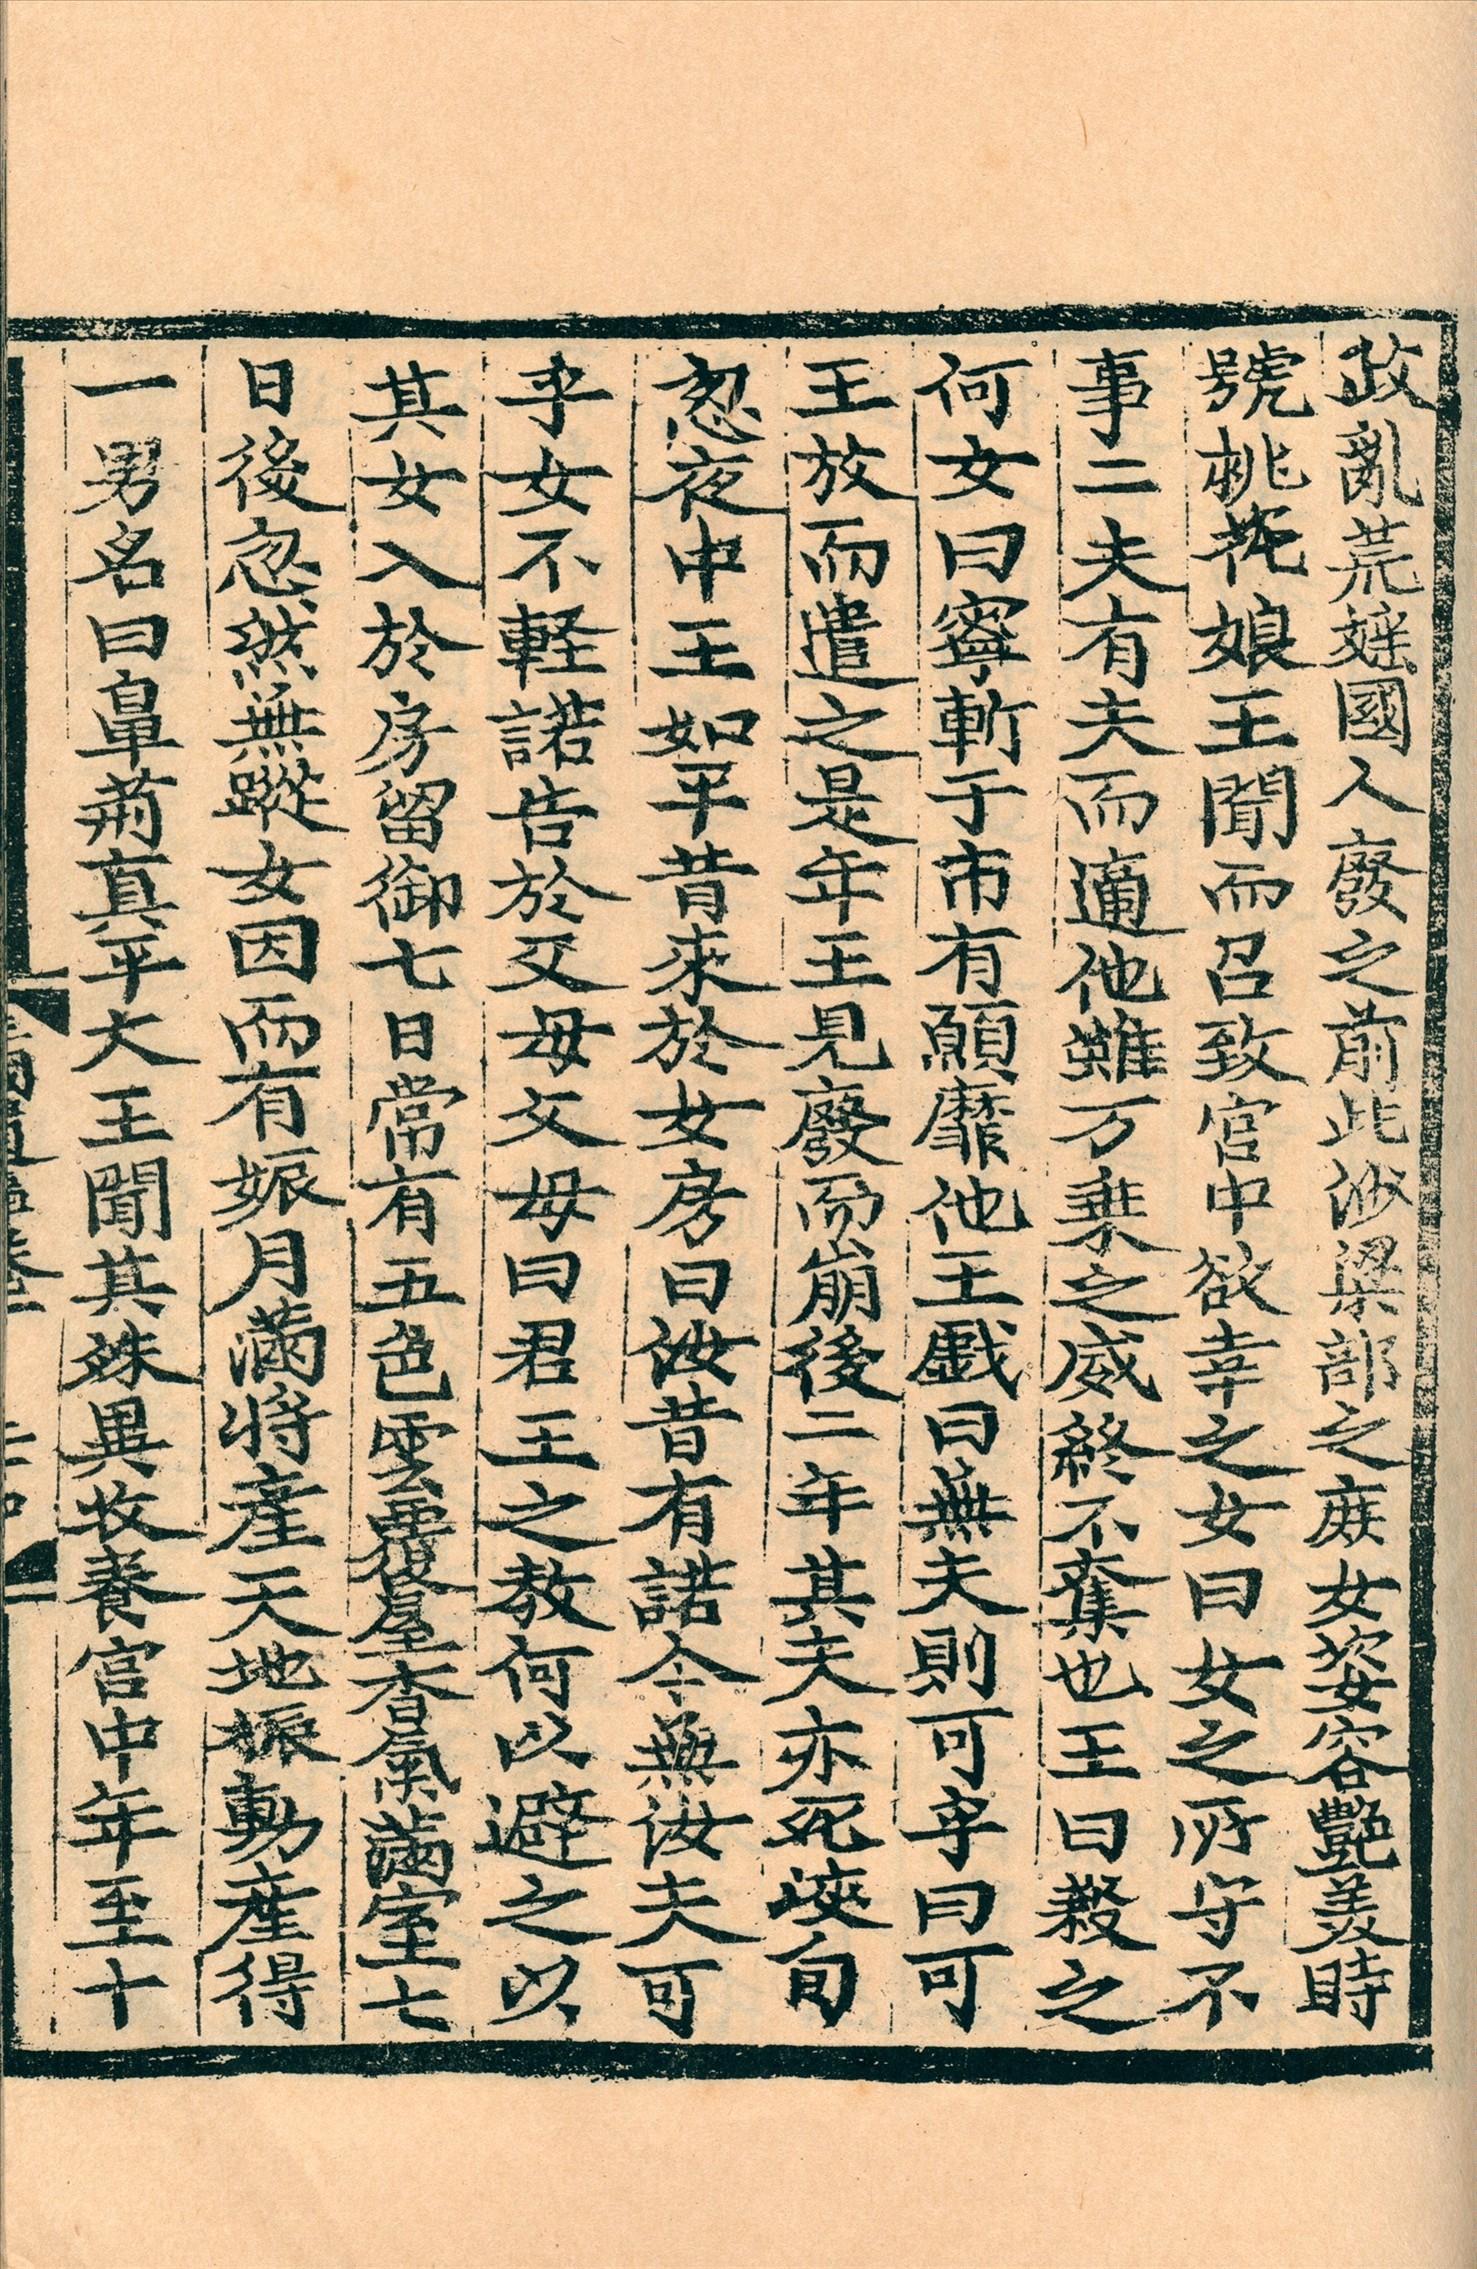 政亂荒婬國人廢之前此沙梁部之庻女姿容艷羙時
號桃花娘王聞而召致宮中欲幸之女曰女之所守不
事二夫有夫而適他雖万乗之威終不奪也王曰殺之
何女曰寧斬于市有願靡他王戱曰無夫則可乎曰可
王放而遣之是年王見廢而崩後二年其夫亦死浹旬
忽夜中王如平昔来於女房曰汝昔有諾今無汝夫可
乎女不軽諾告於父母父母曰君王之教何以避之以
其女入於房留御七日常有五色雲覆屋香氣滿室七
日後忽然無蹤女因而有娠月滿將産天地振動産得
一男名曰鼻荊真平大王聞其殊異收養宮中年至十